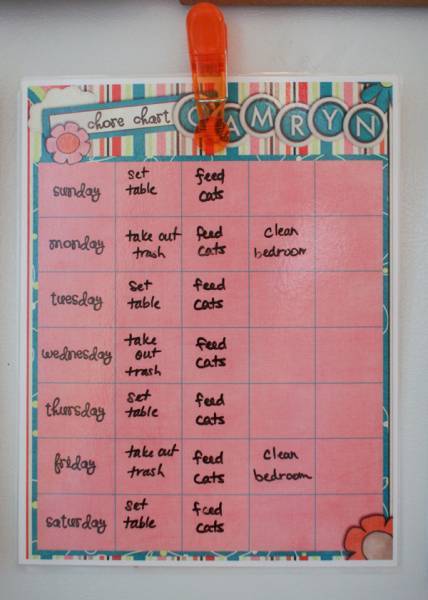 chore chart CAMRYN
sunday set table feed cats
monday take out trash feed cats clean bedroom
tuesday set table feed cats
wednesday take out trash feed cats
thursday set table feed cats
friday take out trash feed cats clean bedroom
saturday set table feed cats